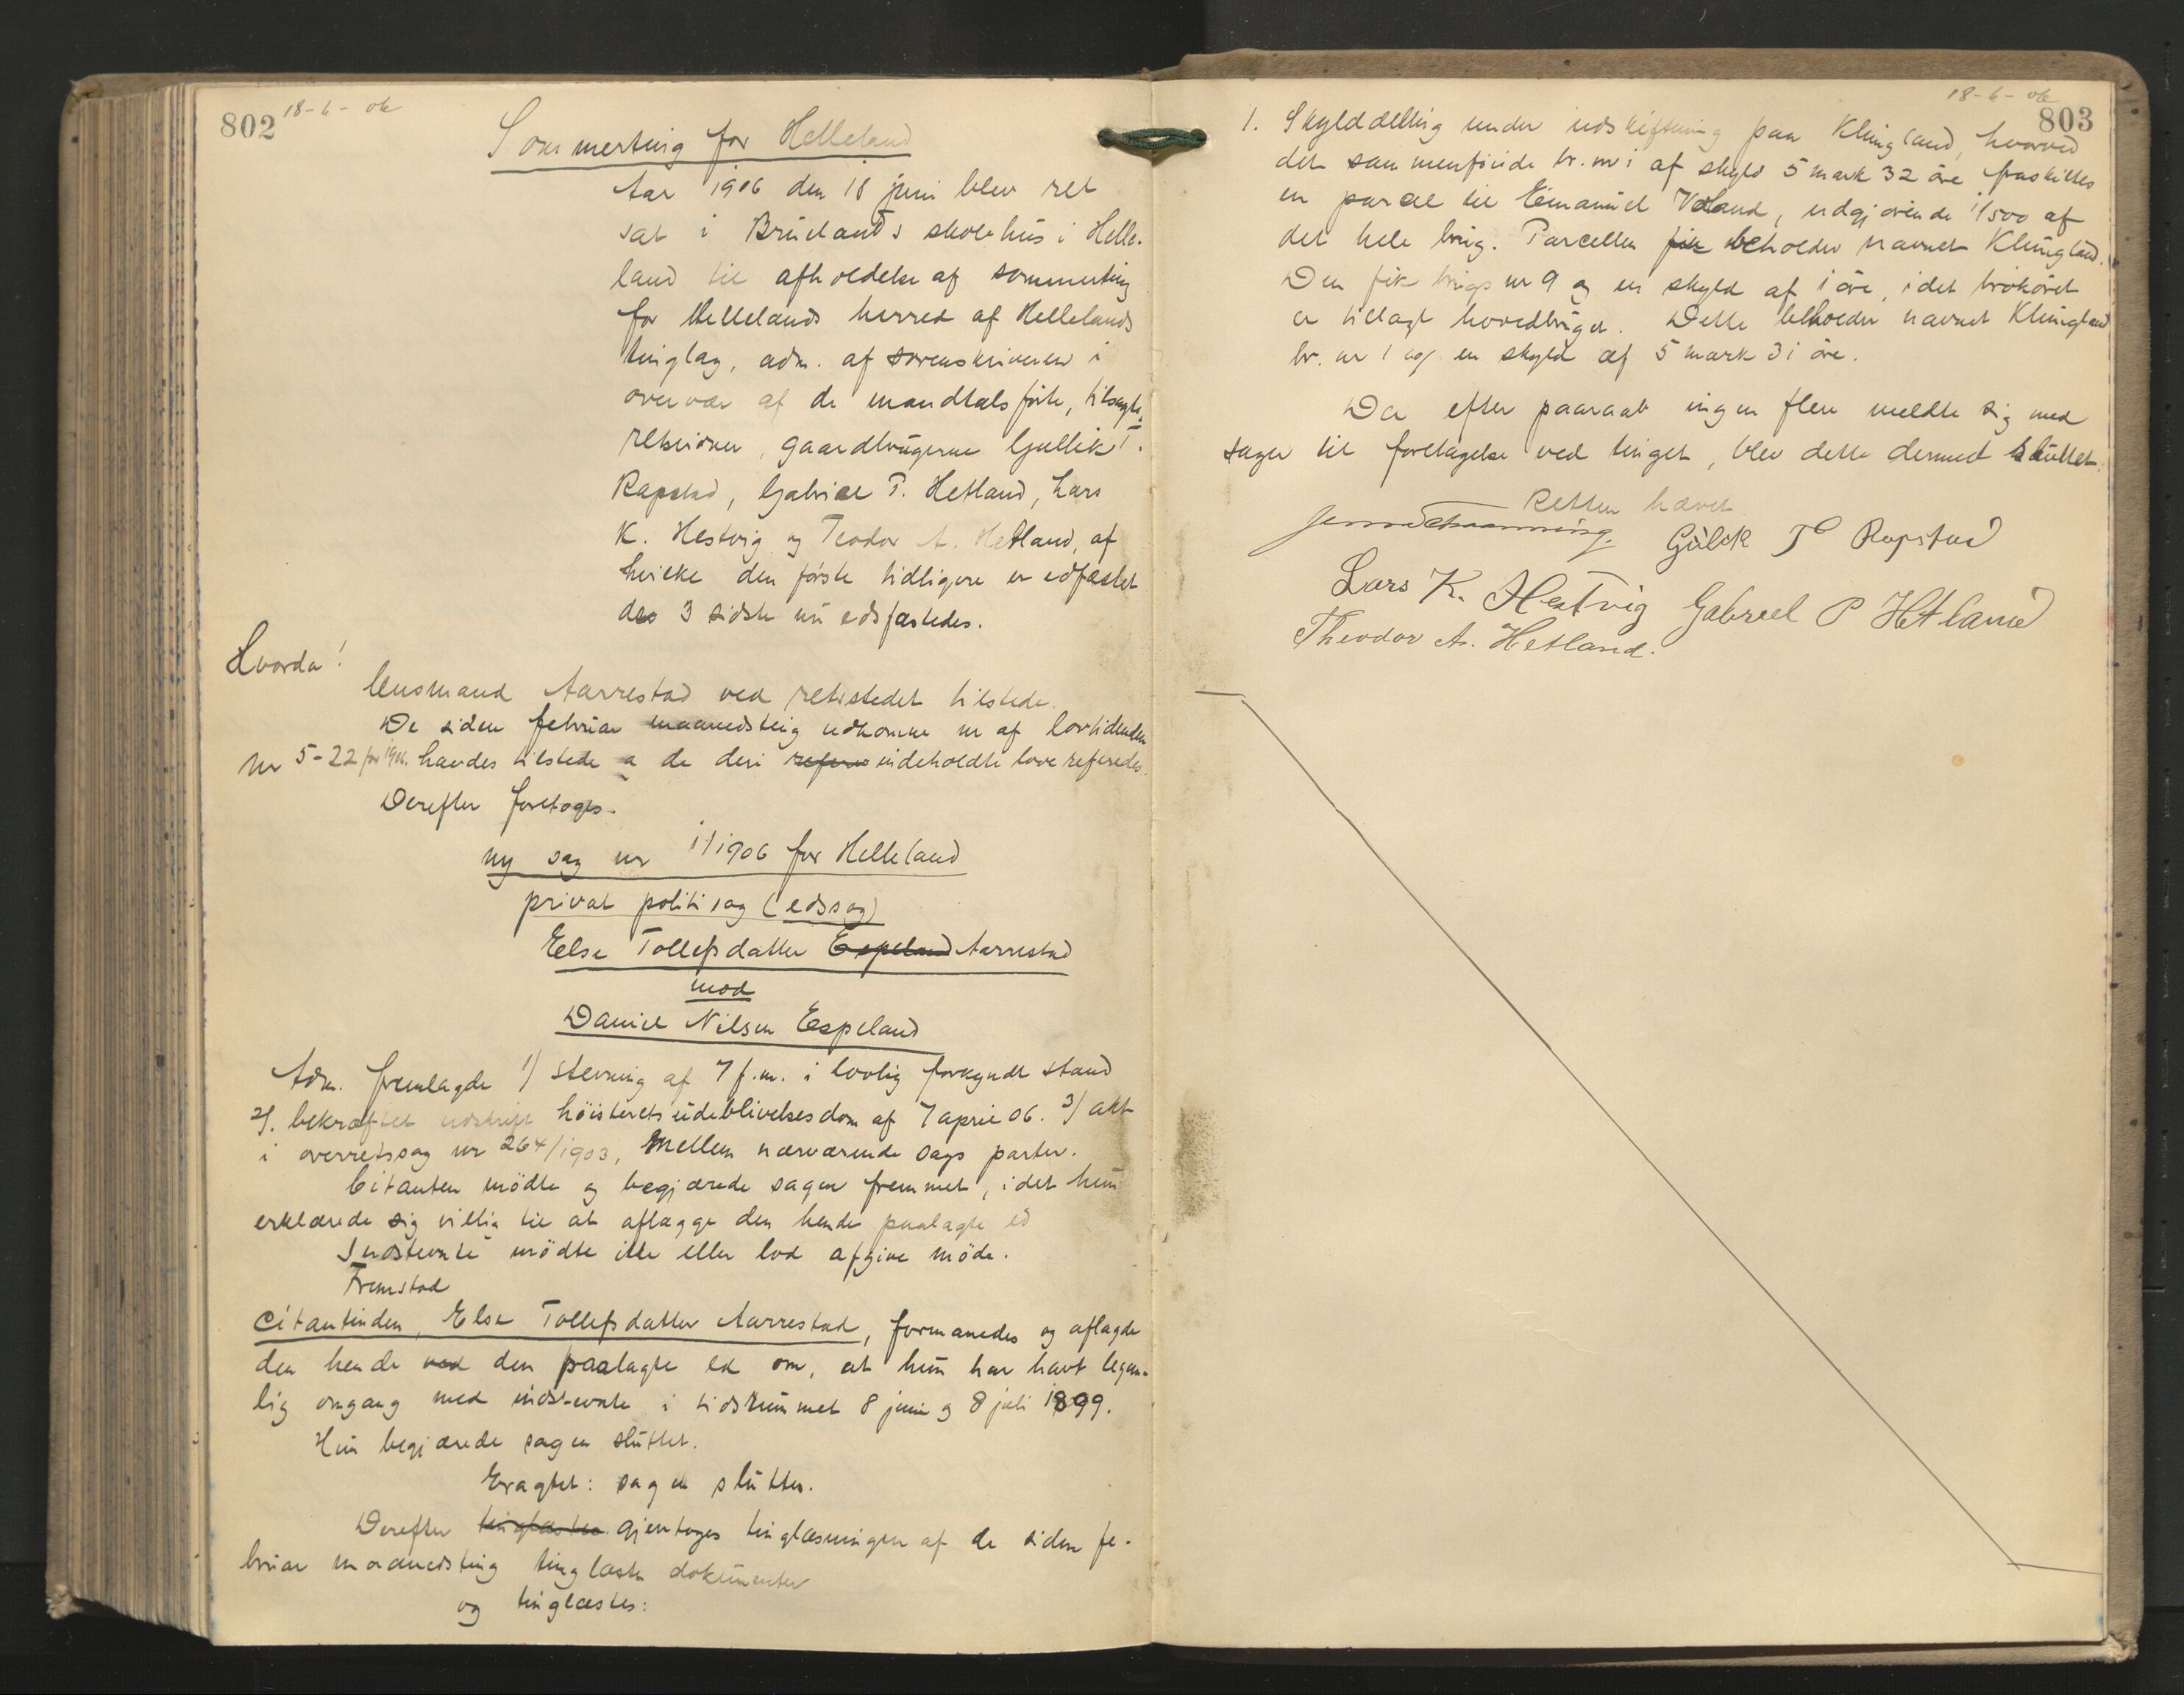 802 18-6-06
Sommerting for Helleland
Aar 1906 den 18 juni blev ret
sat i Bruelands skolehus i Helle-
land til afholdelse af sommerting
for Hellelands herred af Hellelands
tinglag, adm. af sorenskriveren i
overvær af de mandtalsførte, tilsagte
retsvidner, gaardbrugerne Gullik T.
Rapstad, Gabriel P. Hetland, Lars
K. Hestvig og Teodor A. Hetland, af
hvilke den første tidligere er edfæstet
des 3 sidste nu edsfæstedes.
Hvorda!
lensmand Aarrestad ved retsstedet tilstede.
De siden februar maanedsting udkomne nr af lovtidenden
nr 5-22 for 1906. havdes tilstede og de deri refere indeholdte love referedes.
Derefter foretoges.
ny sag nr 1/1906 for Helleland
privat politisag (edssag)
Else Tollefsdatter Espeland Aarrestad
mod
Daniel Nilsen Espeland
Adm. fremlagde 1/ stevning af 7 f.m. i lovlig forkyndt stand
2/. bekræftet udskrift høisterets udeblivelsesdom af 7 april 06. 3/ akt
i overretssag nr 264/1903, mellem nærværende sags parter.
Citanten mødte og begjærede sagen fremmet, idet hun
erklærede sig villig til at aflægge den hende paalagte ed
Indstevnte mødte ikke eller lod afgive møde.
Fremstod
Citantinden, Else Tollefsdatter Aarrestad, formanedes og aflagde
den hende ved den paalagte ed om, at hun har havt legem-
lig omgang med indstevnte i tidsrummet 8 juni og 8 juli 1899.
Hun begjærede sagen sluttet.
Eragtet: sagen sluttes.
Derefter tinglæstes gjentoges tinglæsningen af de siden fe-
bruar maanedsting tinglæste dokumenter
og tinglæstes:
18-6-06
803
1. Skylddelling under udskiftning paa Klungland, hvorved
det sammenføiede br. nr 1 af skyld 5 mark 32 øre fraskilles
en parcel til Emanuel Veland, udgjørende 1/500 af
det hele brug. Parcellen fik beholder navnet Klungland.
Den fik brugs nr 9 og en skyld af 1 øre, idet brøkøret
er tillagt hovedbruget. Dette beholder navnet Klungland
br. nr 1 og en skyld af 5 mark 31 øre.
Da efter paaraab ingen flere meldte sig med
sager til foretagelse ved tinget, blev dette dermed sluttet.
Retten hævet
Gulek T Rapstad
Lars K. Hestvig Gabreel P Hetland
Theodor A. Hetland.